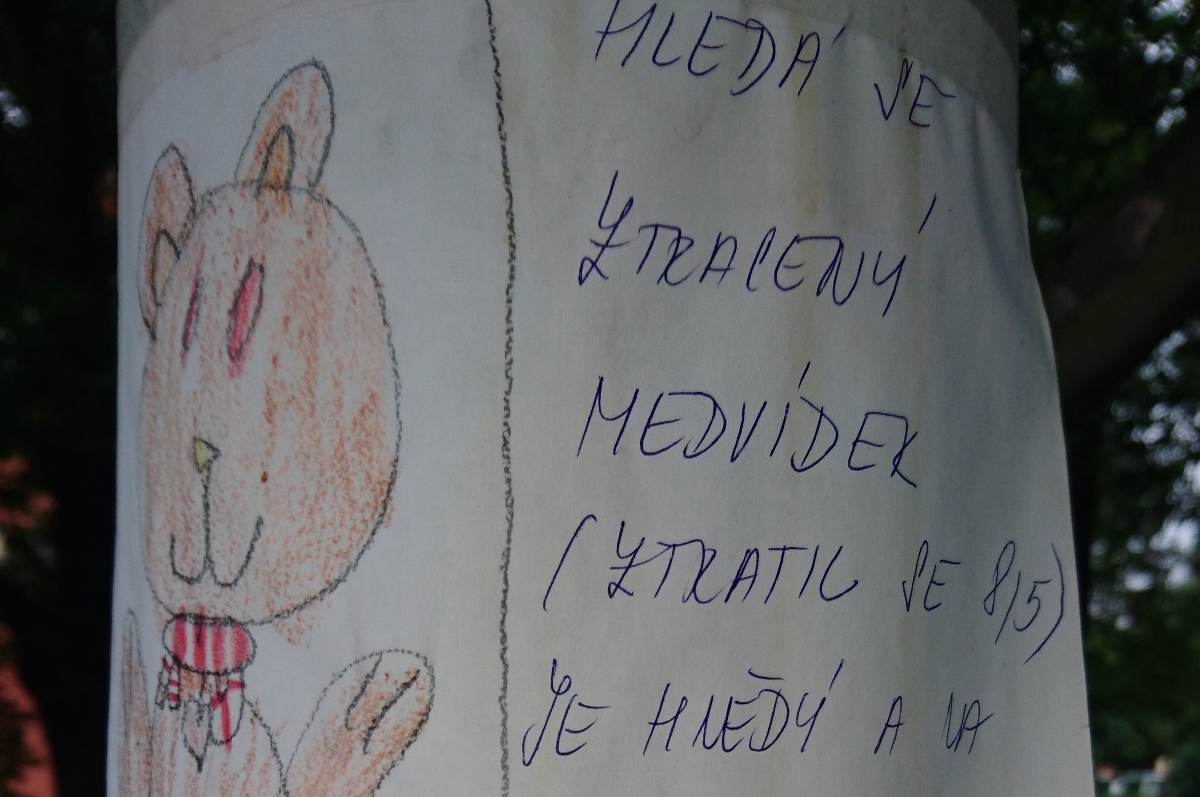 HLEDÁ SE
ZTRACENÝ
MEDVÍDEK
(ZTRATIL SE 8/5)
JE HNĚDÝ A NA